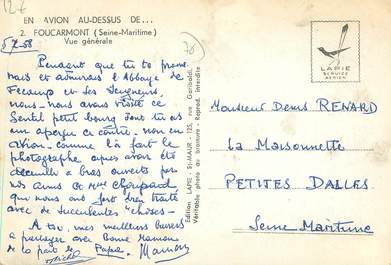 12€
EN AVION AU-DESSUS DE...
2. FOUCARMONT (Seine-Maritime)
Vue générale
5/2-58
76
Pendant que tu te prome-
nais et admirais l'Abbaye de
Fecamp et ses Seigneurs,
nous-nous avons visité ce
Gentil petit bourg dont tu as
un aperçu ci contre. non en
avion - comme l'a fait le
photographe après avoir été
accueillis a bras ouverts par
nos amis
qui nous ont fort bien traité
avec de succulentes "choses".
A toi, mes meilleurs baisers
a partager avec Bonne Maman
de la part de Papa. Maman
Michel
Edition LAPIE - St-MAUR - 125, rue Garibaldi
Véritable photo au bromure - Reprod. interdite
LAPIE
SERVICE
AERIEN
Monsieur Denis RENARD
La Maisonnette
PETITES DALLES
Seine Maritime